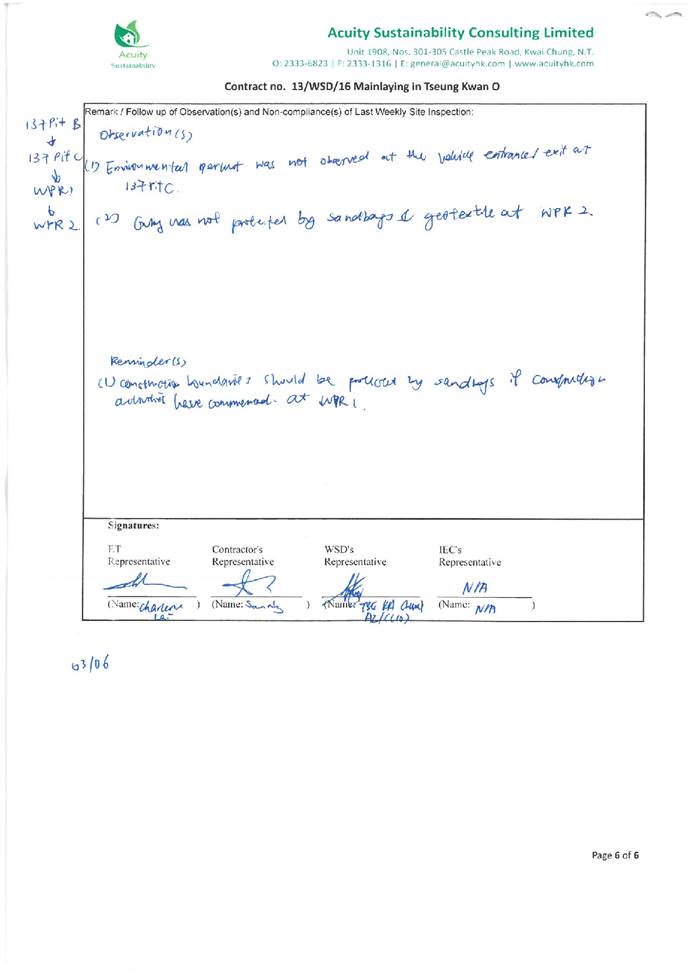 Acuity Sustainability Consulting Limited
Acuity
Sustainability
Unit 1908, Nos. 301-305 Castle Peak Road, Kwai Chung, N.T.
O: 2333-6823 | F: 2333-1316 | E: general@acuityhk.com | www.acuityhk.com
Contract no. 13/WSD/16 Mainlaying in Tseung Kwan O
Remark / Follow up of Observation(s) and Non-compliance(s) of Last Weekly Site Inspection:
137 Pit B
↓
137 Pit C
↓
WPR1
↓
WPR 2
Observation(s)
(1) Environmental permit was not observed at the vehicle entrance/ exit at
137 Pit C.
(2) was not protected by sandbags & geotextile at WPR 2.
Reminder(s)
(1) construction boundaries should be protected by sandbags if construction
activities have commenced. at WPR 1.
Signatures:
ET
Representative
Contractor's
Representative
WSD's
Representative
IEC's
Representative
N/A
(Name: Charlene Lai )
(Name: Sandy )
(Name:
(Name: N/A )
03/06
Page 6 of 6